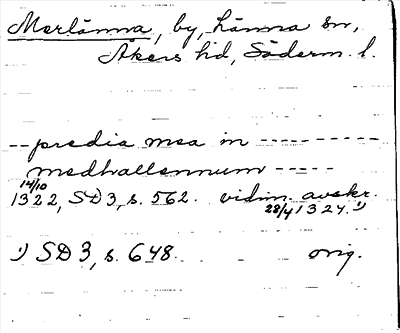 Merlänna, by, Länna sn,
Åkers hd, Söderm. l.
-- predia mea in ---------
medhallennum -----
14/10
1322, SD 3, s. 562. vidim. avskr.
28/4 1324. 1)
1) SD 3, s. 648. orig.